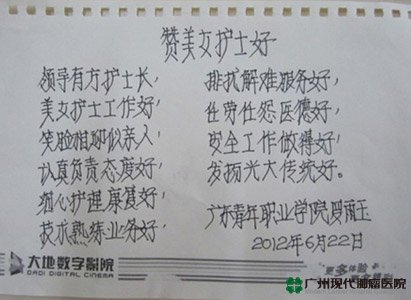 赞美女护士好
领导有方护士长，
美女护士工作好，
笑脸相迎似亲人，
认真负责态度好，
细心护理康复好，
技术熟练业务好，
排忧解难服务好，
任劳任怨医德好，
安全工作做得好，
发扬光大传统好。
广东青年职业学院 罗雨玉
2012年6月22日
大地数字影院
DADI DIGITAL CINEMA
更多体验
广州现代肿瘤医院